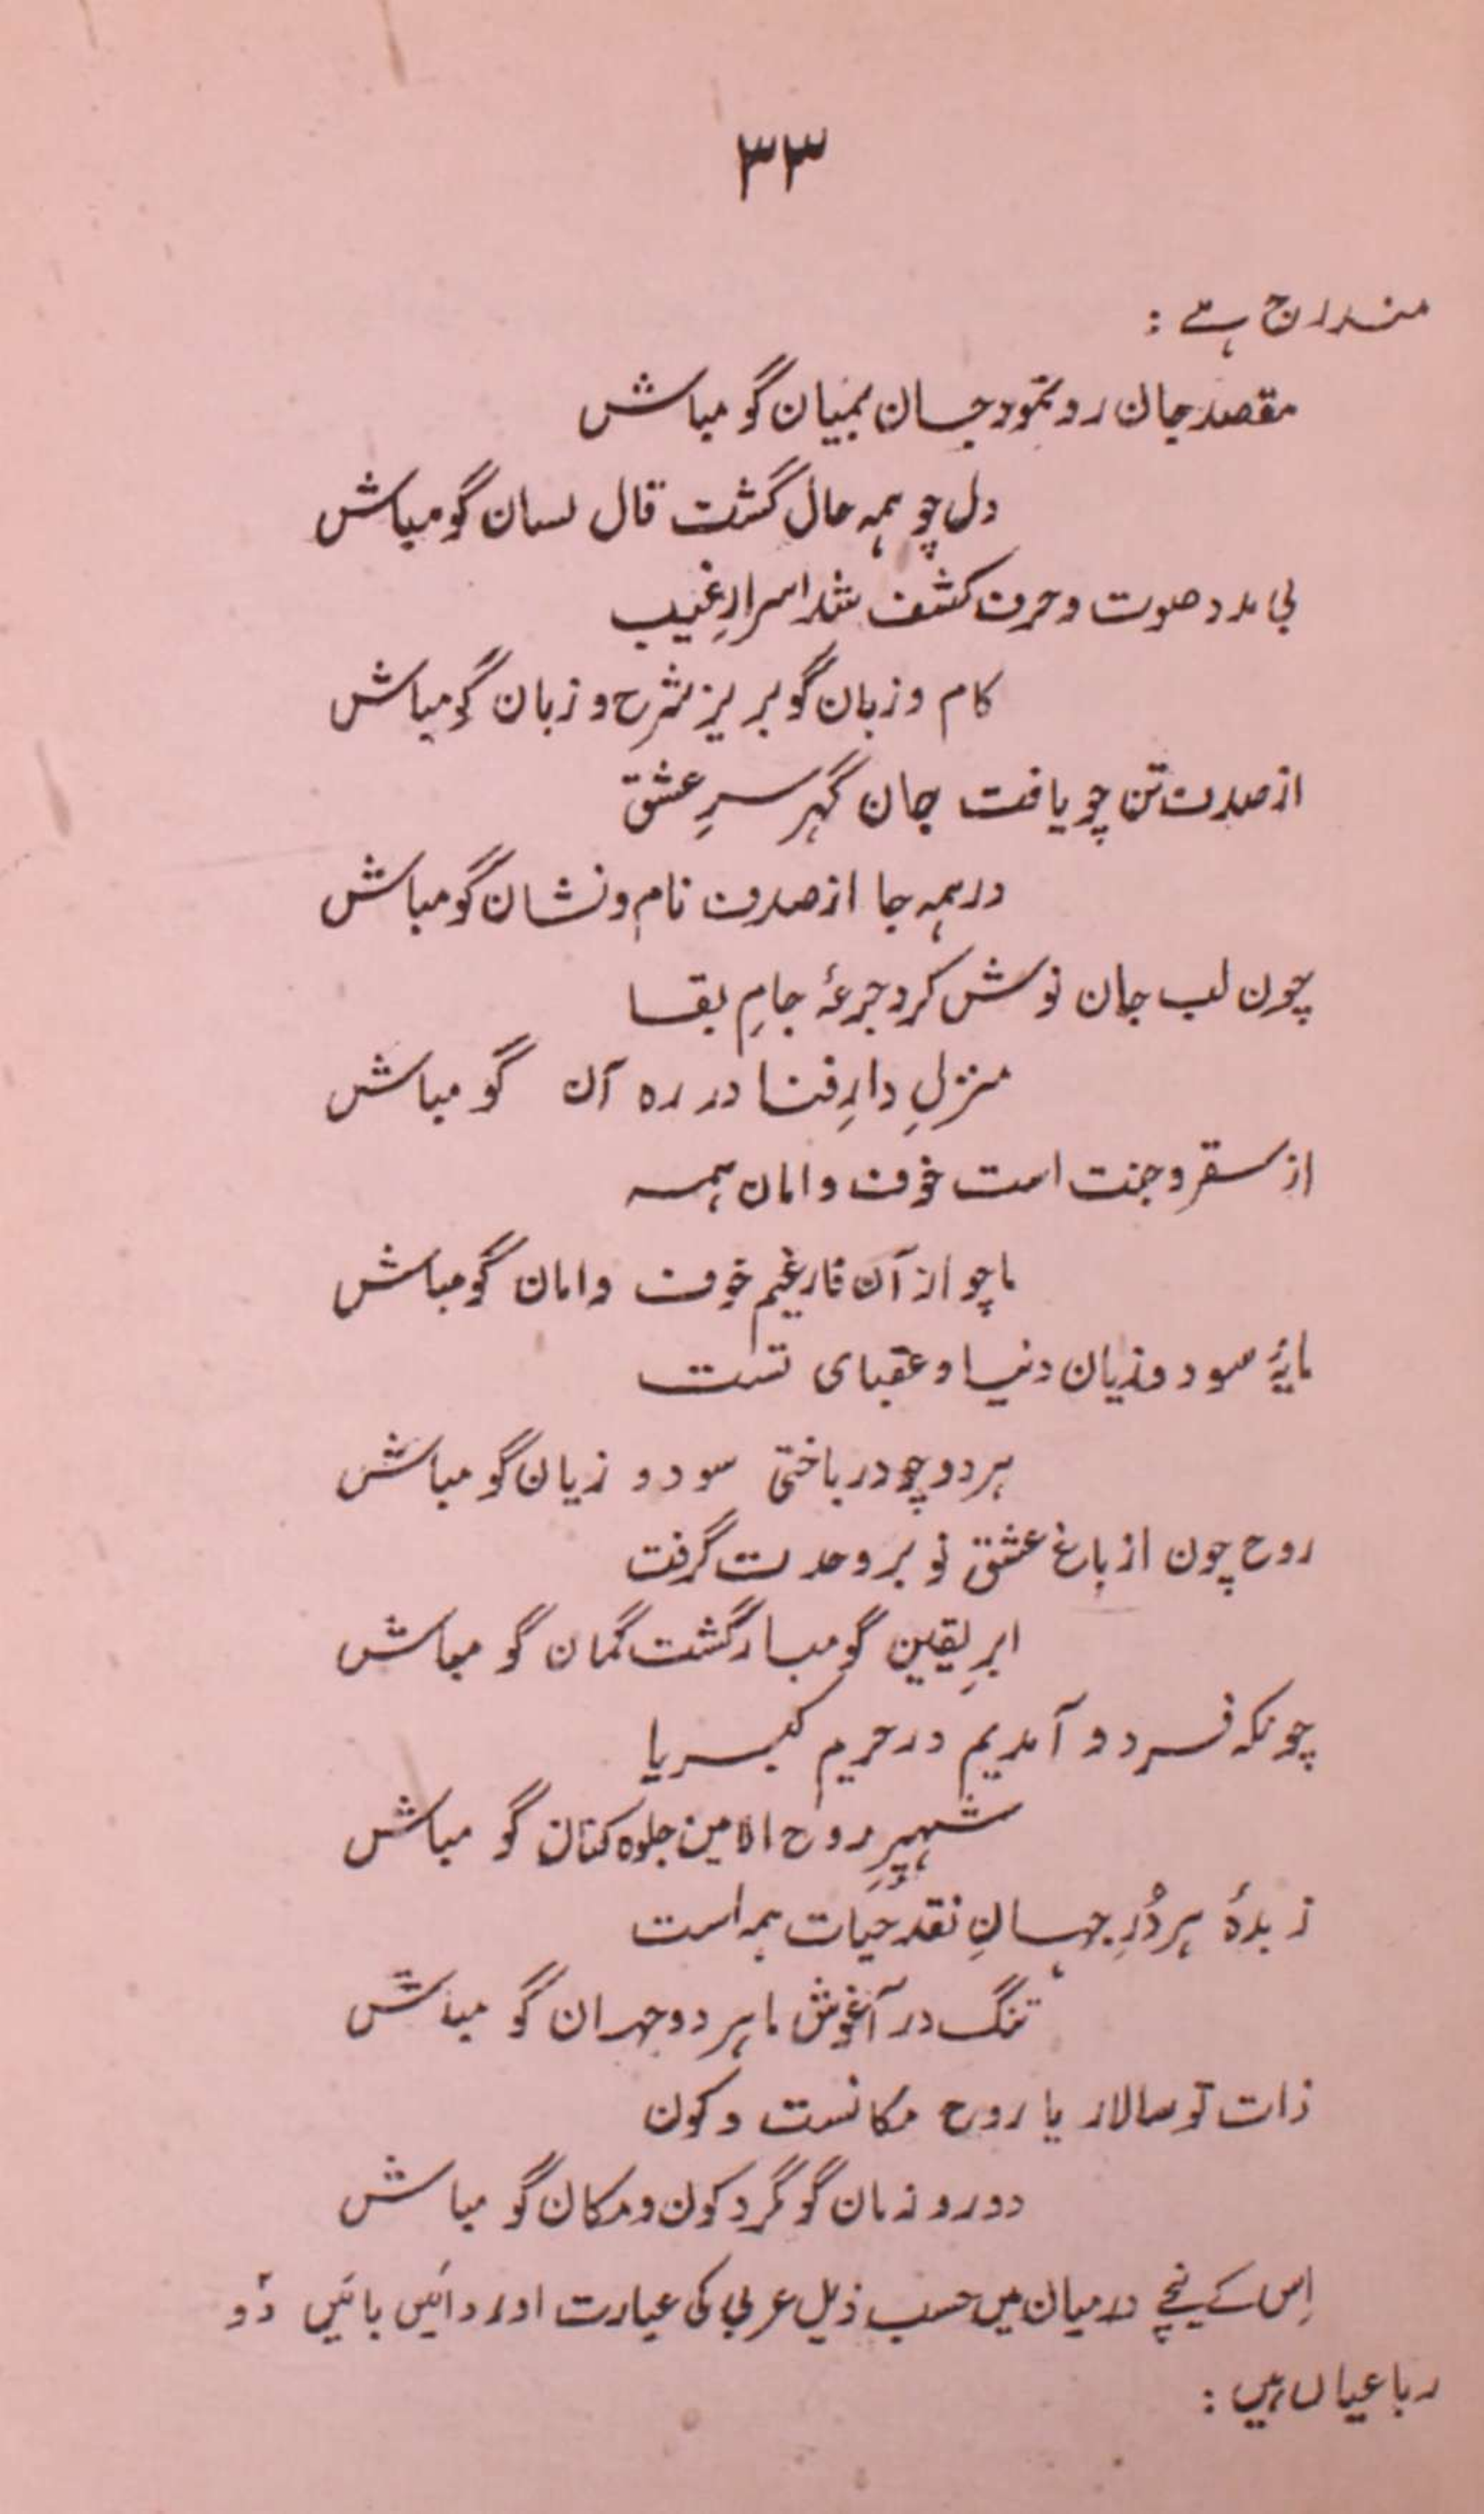 ۳۳
مندرج ہے :
مقصد جان رو نمود جسان بمیان گو مباش
دل چو ہمہ حال گشت قال لسان گو مباش
بی مدد صوت و حرف کشف شد اسرارِ غیب
کام و زبان گو بریز شرح و زبان گو مباش
از صدف تن چو یافت جان گہر سرِ عشق
در ہمہ جا از صدف نام و نشان گو مباش
چون لب جان نوش کرد جرعۂ جامِ بقا
منزلِ دارِ فنا در رہ آن گو مباش
از سقر و جنت است خوف و امان ہمہ
ما چو از آن فارغیم خوف و امان گو مباش
مایۂ سود و زیان دنیا و عقبای تست
ہر دو چو در باختی سود و زیان گو مباش
روح چون از باغ عشق نو بر وحدت گرفت
ابرِ یقین گو مبار گشت گمان گو مباش
چونکہ فرد و آمدیم در حریم کبریا
شہپرِ روح الامین جلوہ کنان گو مباش
زبدۂ ہر دُرِ جہانِ نقد حیات ہمہ است
تنگ در آغوش ما ہر دو جہان گو مباش
ذات تو سالار یا روح مکانست و کون
دور و زمان گو مگرد کون و مکان گو مباش
اِس کے نیچے درمیان میں حسب ذیل عربی کی عبارت اور دائیں بائیں دو
رباعیاں ہیں :